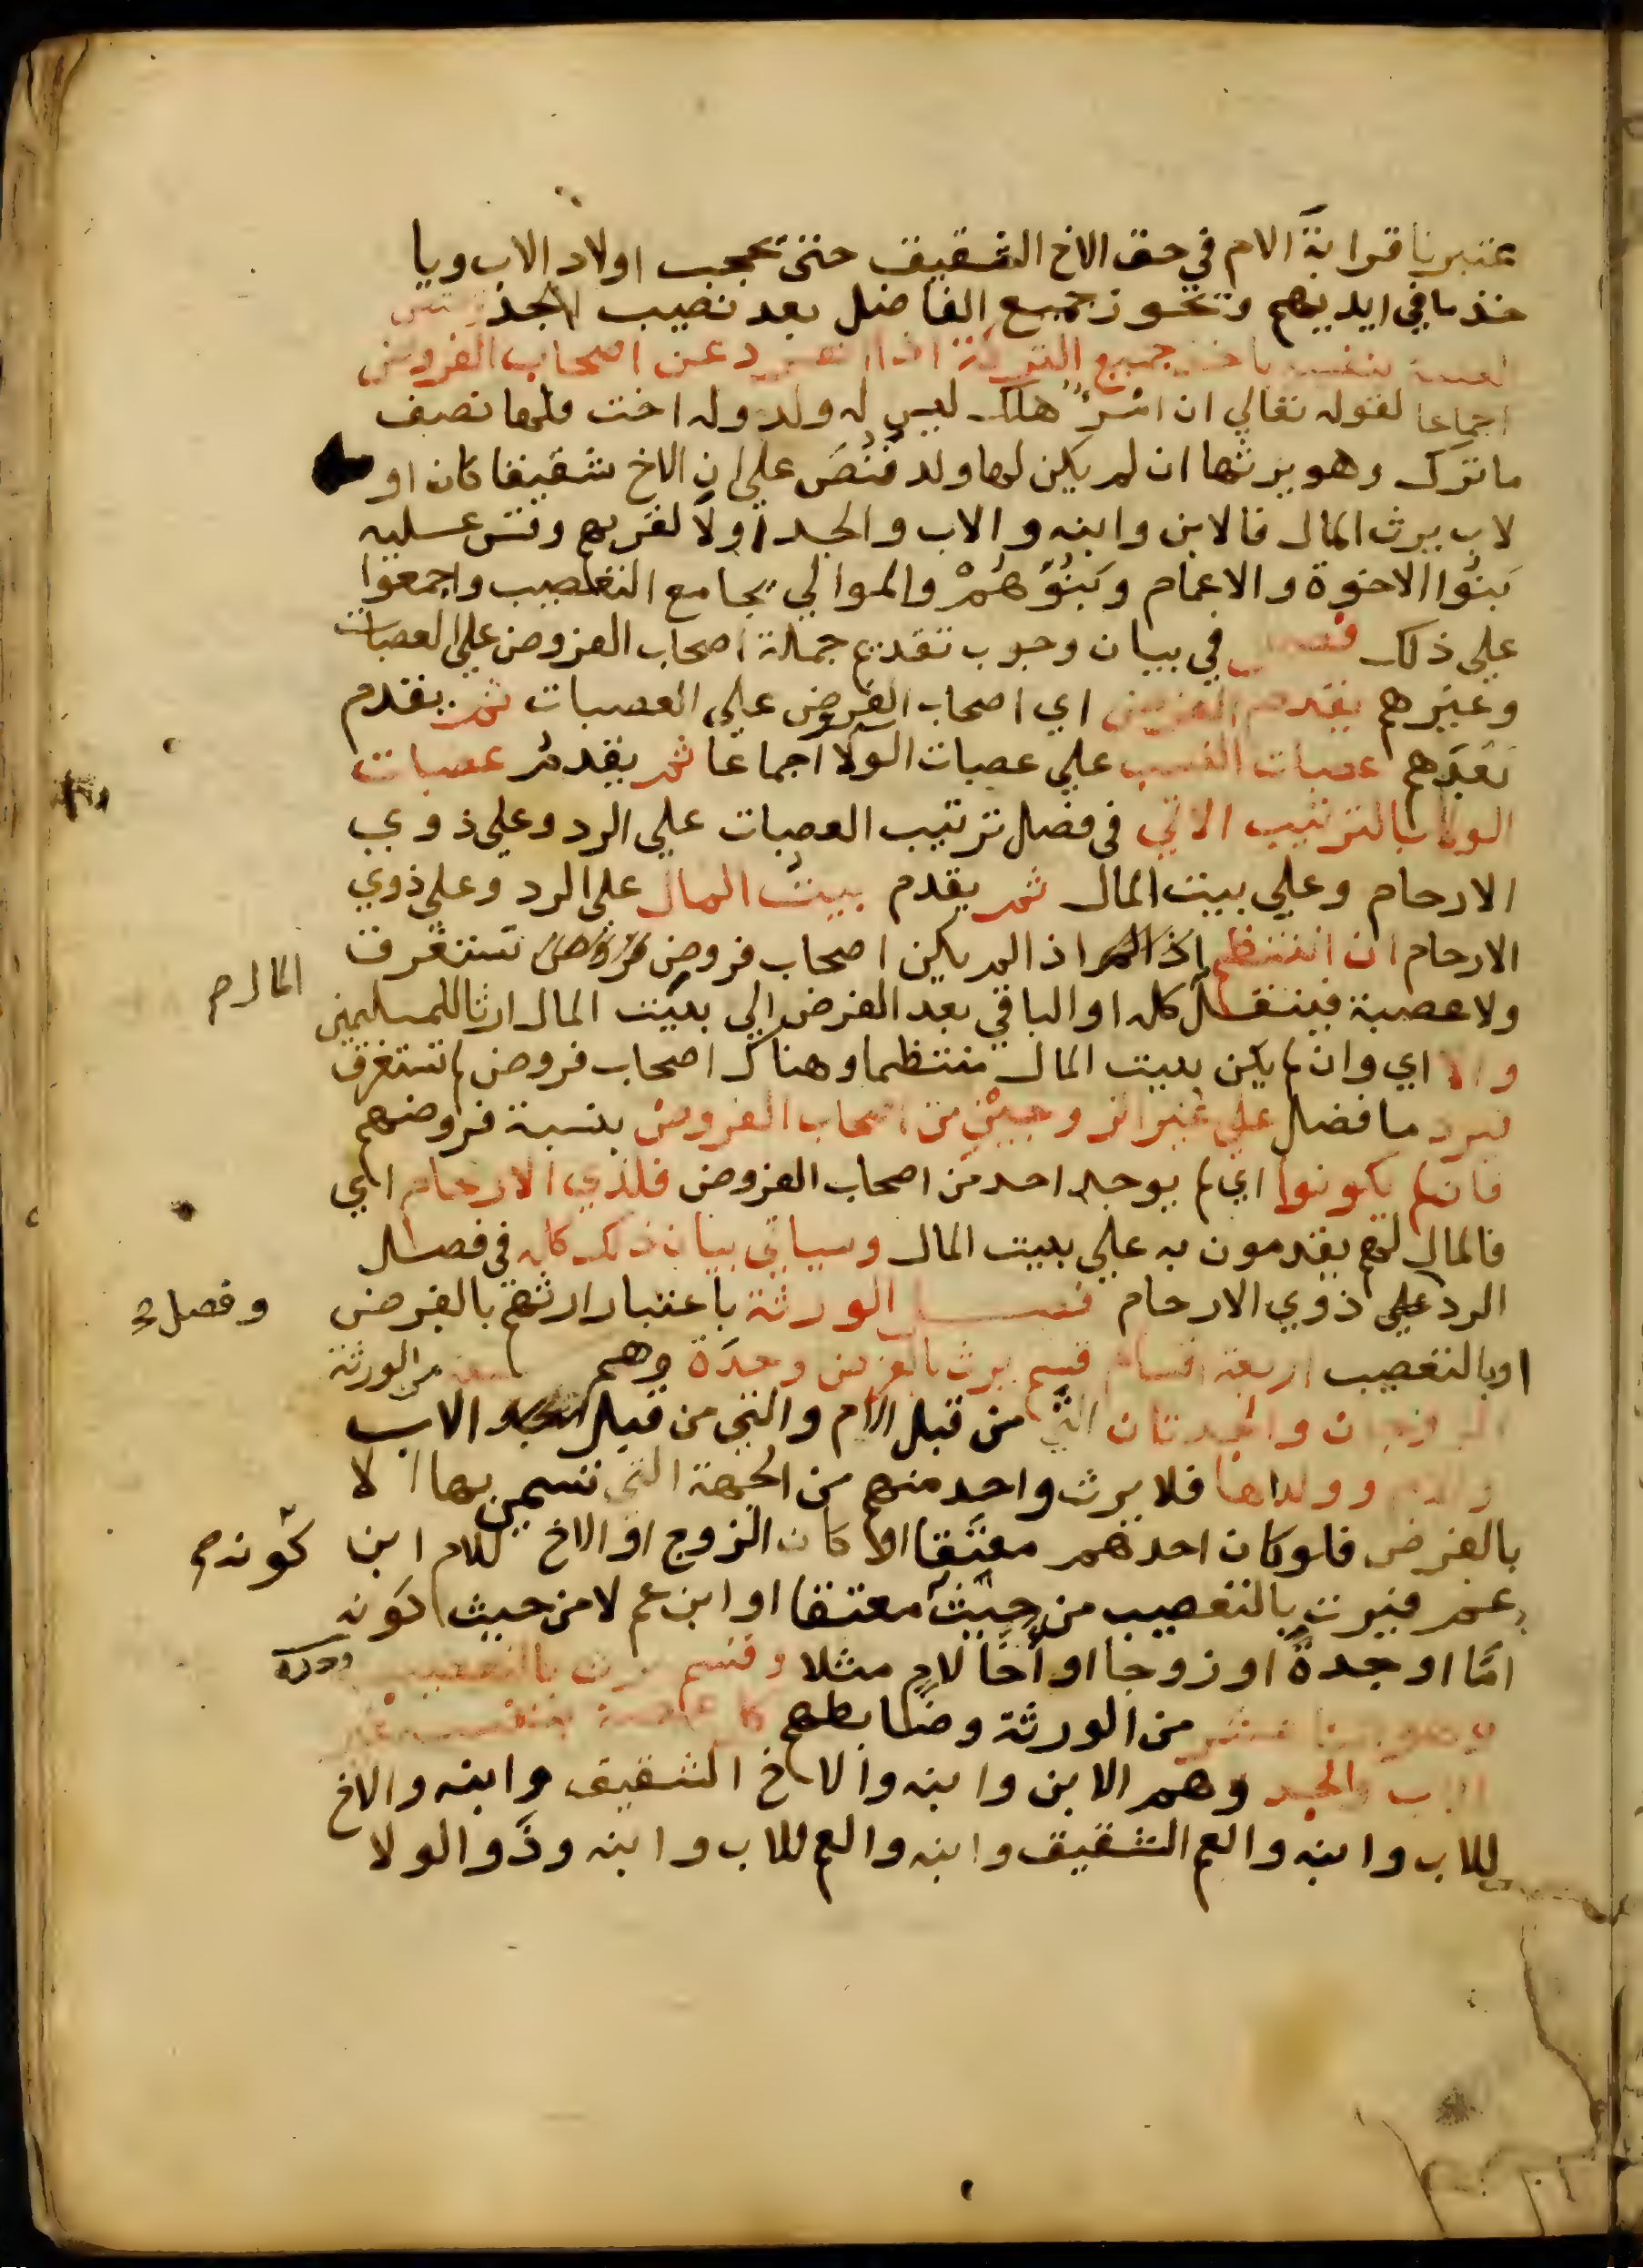 عتبرنا قرابة الام في حق الاخ الشقيق حتى يحجب اولاد الاب ويا
خذ ما في ايديهم وتحوز جميع الفاضل بعد نصيب الجد
بنفسه ياخذ جميع التركة اذا انفرد عن اصحاب الفروض
اجماعا لقوله تعالي ان امرؤ هلك ليس له ولد وله اخت فلها نصف
ما ترك وهو يرثها ان لم يكن لها ولد فنُصَّ علي ان الاخ شقيقا كان او
لاب يرث المال فالابن وابنه والاب والجد اولا لقربهم وقس عليه
بَنُوا الاخوة والاعمام وبَنُوهُمْ والموالي بجامع التعصيب واجمعوا
علي ذلك فصل في بيان وجوب تقديم جملة اصحاب الفروض علي العصبات
وغيرهم يقدم الفرض اي اصحاب الفروض علي العصبات ثم يقدم
بَعْدَهم عصبات النسب علي عصبات الولا اجماعا ثم يقدم عصبات
الولا بالترتيب الاتي في فصل ترتيب العصبات علي الرد وعلي ذوي
الارحام وعلي بيت المال ثم يقدم بيت المال علي الرد وعلي ذوي
الارحام ان انتظم اذا لم يكن اصحاب فروض تستغرق المال
ولا عصبة فينتقل كله او الباقي بعد الفرض الي بيت المال ارثا للمسلمين
والا اي وان لم يكن بيت المال منتظما وهناك اصحاب فروض لم تستغرق
فيرد ما فضل علي غير الزوجين من اصحاب الفروض بنسبة فروضهم
فان لم يكونوا اي لم يوجد احد من اصحاب الفروض فلذي الارحام اي
فالمال لهم يقدمون به علي بيت المال وسياتي بيان ذلك كله في فصل
الرد علي ذوي الارحام فصل الورثة باعتبار ارثهم بالفرض وفصل
اوبالتعصيب اربعة اقسام قسم يرث بالفرض وحدة وهم سبعة من الورثة
الزوجان والجدتان التي من قبل الام والتي من قبل الاب
والام وولداها فلا يرث واحد منهم من الجهة التي تسمي بها الا
بالفرض فلو كان احدهم معتقا او كان الزوج او الاخ للام ابن
عم فيرث بالتعصيب من حيث كونه معتقا او ابن عم لا من حيث كونه
امَّا او جدةً او زوجا او أخًا لامٍ مثلا وقسم يرث بالتعصيب وحده
من الورثة وضابطهم كل عصبة بنفسه غير
الاب والجد وهم الابن وابنه والاخ الشقيق وابنه والاخ
للاب وابنه والعم الشقيق وابنه والعم للاب وابنه وذو الولا